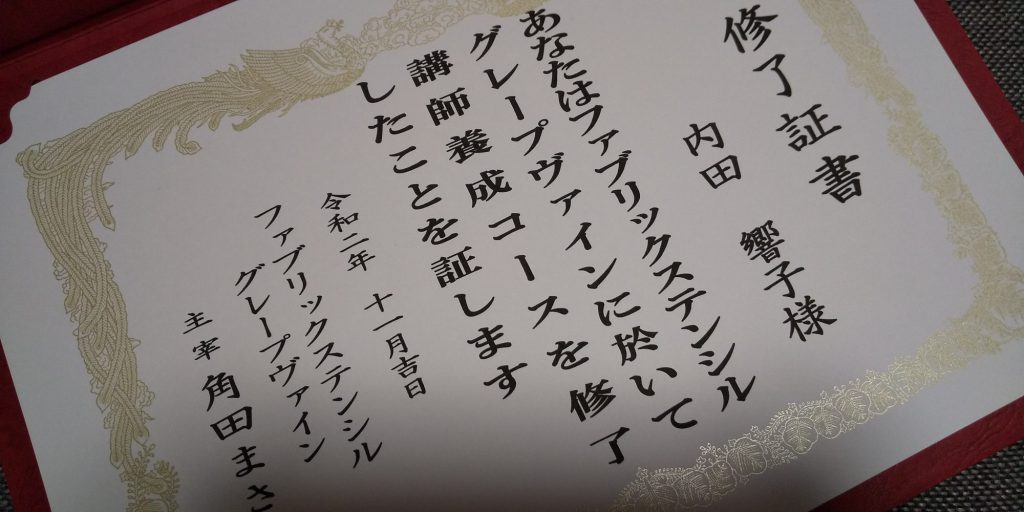 修了証書
内田 響子様
あなたはファブリックステンシル
グレープヴァインに於いて
講師養成コースを修了
したことを証します
令和二年 十一月吉日
ファブリックステンシル
グレープヴァイン
主宰 角田まさ